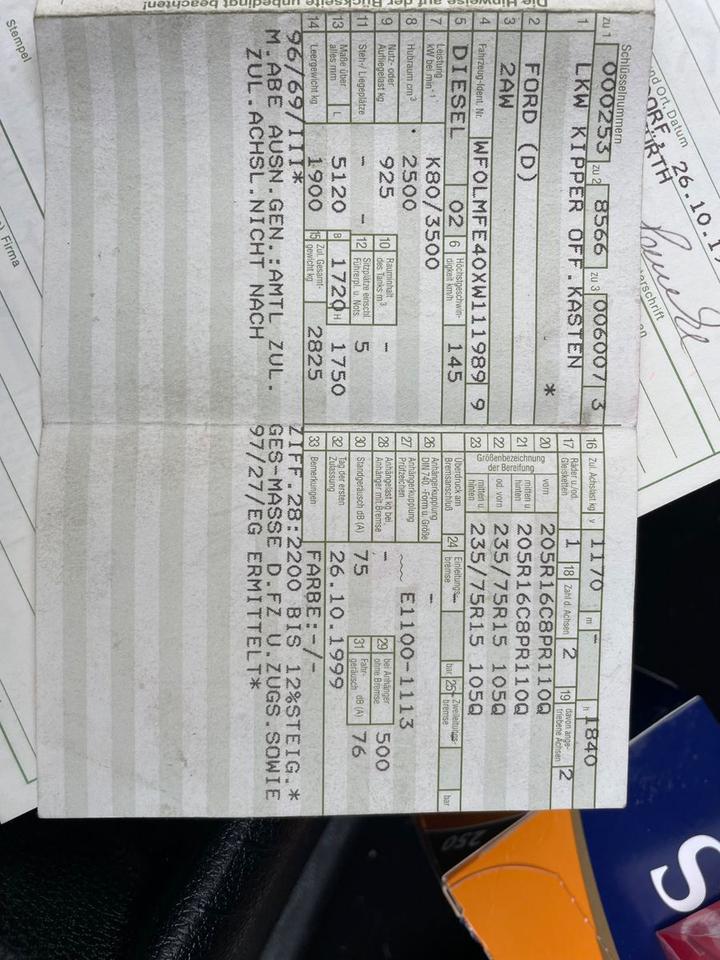 Schlüsselnummern
zu 1 000253 zu 2 8566 zu 3 006007 3
1 LKW KIPPER OFF.KASTEN
2 FORD (D) *
3 2AW
4 Fahrzeug-Ident. Nr. WF0LMFE40XW111989 9
5 DIESEL 02 6 Höchstgeschwin-digkeit km/h 145
7 Leistung kW bei min⁻¹ K80/3500
8 Hubraum cm³ 2500
9 Nutz- oder Aufliegelast kg 925 10 Rauminhalt des Tanks m³ -
11 Steh-/ Liegeplätze - - 12 Sitzplätze einschl. Führerpl. u. Nots. 5
13 Maße über alles mm L 5120 B 1720 H 1750
14 Leergewicht kg 1900 15 Zul. Gesamt-gewicht kg 2825
96/69/III*
M.ABE AUSN.GEN.:AMTL ZUL.
ZUL.ACHSL.NICHT NACH
16 Zul. Achslast kg v 1170 m - h 1840
17 Räder u./od. Gleisketten 1 18 Zahl d. Achsen 2 19 davon ange-triebene Achsen 2
Größenbezeichnung der Bereifung
20 vorn 205R16C8PR110Q
21 mitten u. hinten 205R16C8PR110Q
22 od. vorn 235/75R15 105Q
23 mitten u. hinten 235/75R15 105Q
Überdruck am Bremsanschluß 24 Einleitungs-bremse - bar 25 Zweileitungs-bremse - bar
26 Anhängerkupplung DIN 740.. -Form u. Größe -
27 Anhängerkupplung Prüfzeichen ~~~ E1100-1113
28 Anhängelast kg bei Anhänger mit Bremse - 29 bei Anhänger ohne Bremse 500
30 Standgeräusch dB (A) 75 31 Fahr-geräusch dB (A) 76
32 Tag der ersten Zulassung 26.10.1999
33 Bemerkungen FARBE:-/-
ZIFF.28:2200 BIS 12%STEIG.*
GES-MASSE D.FZ U.ZUGS.SOWIE
97/27/EG ERMITTELT*
Die Hinweise auf der Rückseite unbedingt beachten!
Stempel
Firma
Ort, Datum
26.10.1
250
S